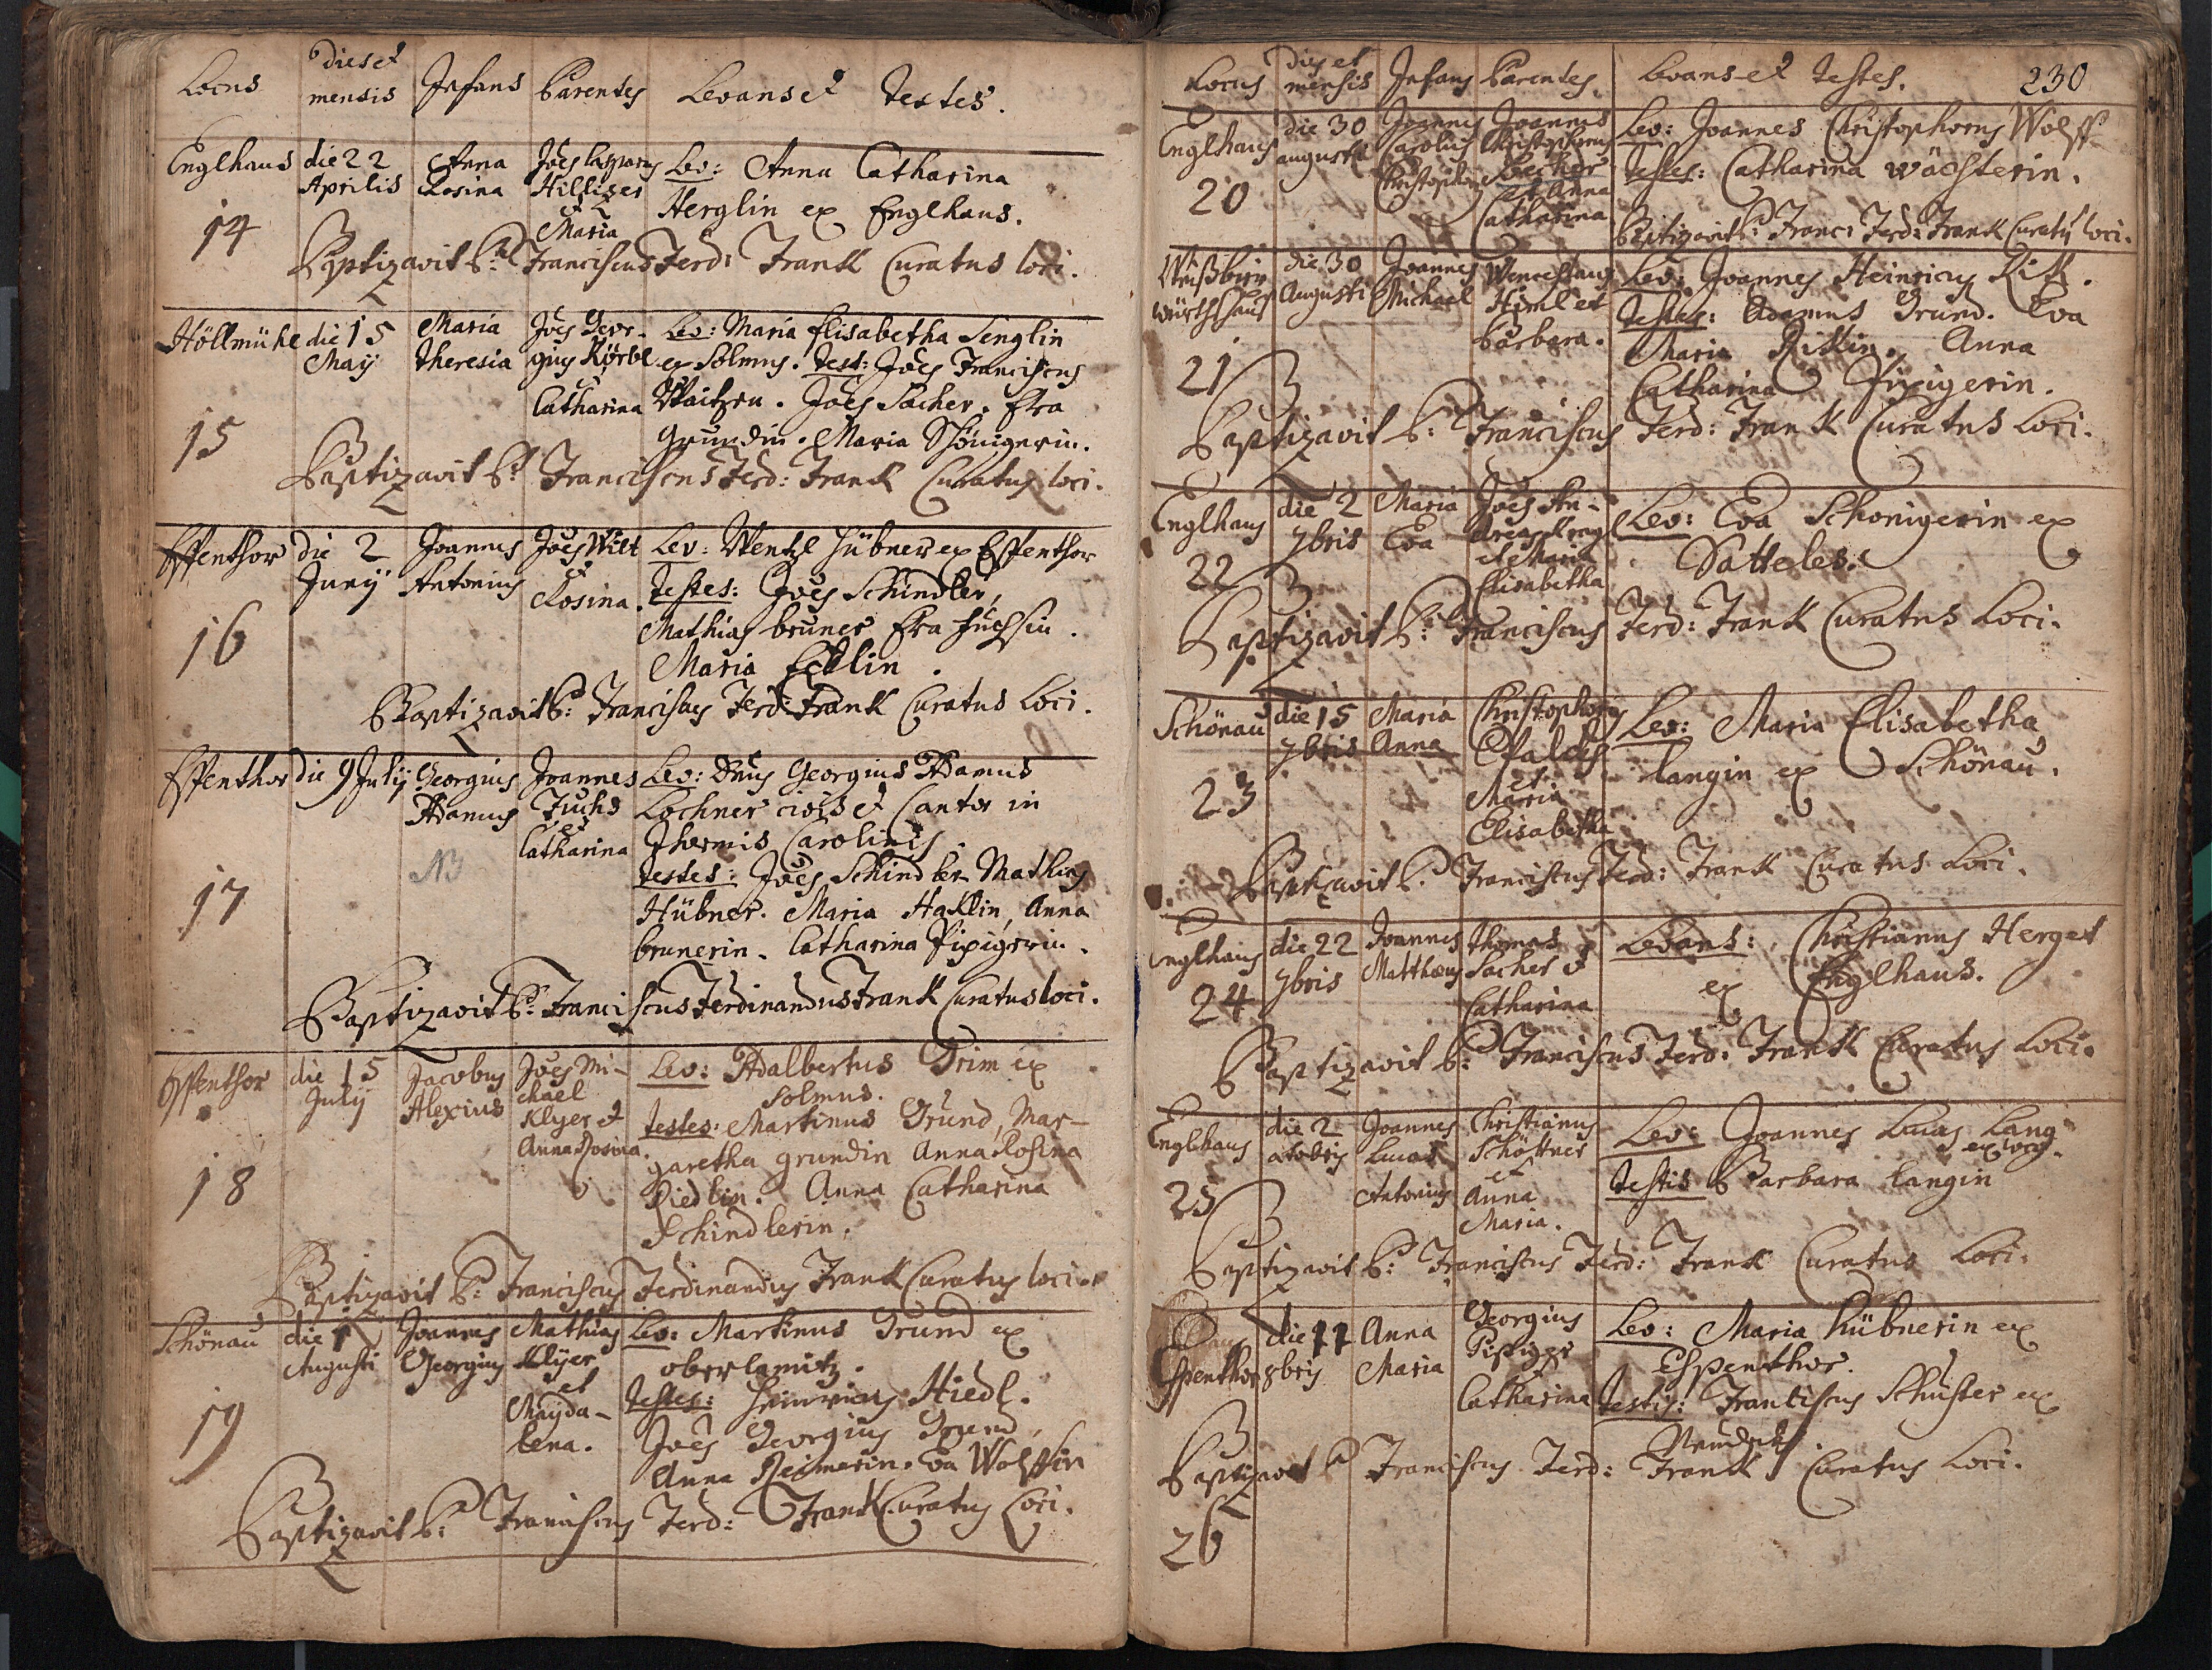 Locus dies et mensis Infans Parentes Levans et Testes.
Englhaus die 22 Aprilis Anna Rosina Joes Casparus Hilliger et Maria
Lev: Anna Catharina
Herglin ex Englhaus.
14
Baptizavit P. Franciscus Ferd: Frank Curatus loci.
Höllmühl die 15 May Maria Theresia Joes Geor-
gius Körbl et Catharina
Lev: Maria Elisabetha Senglin
ex Solmus. Test: Joes Franciscus
Joes Sacher. Eva
Grundin. Maria Schönigerin.
15
Baptizavit P. Franciscus Ferd: Frank Curatus loci.
Espenthor die 2 Juny Joannes Antonius Joes Wilt et Rosina.
Lev: Wentzl Hübner ex Espenthor
Testes: Joes Schindler,
Mathias bruner Eva Fuchsin.
Maria Ecklin.
16
Baptizavit P: Franciscus Ferd: Frank Curatus Loci.
Espenthor die 9 July Georgius Adamus Joannes Fuchs et Catharina
NB
Lev: Dnus Georgius Adamus
Lochner civis et Cantor in
Thermis Carolinis.
testes: Joes Schindler Mathias
Hübner. Maria Hacklin, Anna
brunerin. Catharina Pipigerin.
17
Baptizavit P: Franciscus Ferdinandus Frank Curatus loci.
Espenthor die 15 July Jacobus Alexius Joes Mi-
chael
Klyer et
Anna Rosina.
Lev: Adalbertus Grim ex
Solmus.
testes: Martinus Grund, Mar-
garetha grundin Anna Rosina
Riedlin. Anna Catharina
Schindlerin.
18
Baptizavit P: Franciscus Ferdinandus Frank Curatus loci.
Schönau die 1 Augusti Joannes Georgius Mathias Klyer
et
Magda-
lena.
Lev: Martinus Grund ex
oberlamitz.
testes: Heinricus Hiedl.
Joes Georgius Grund,
Anna Reimerin. Eva Wolffin
19
Baptizavit P: Franciscus Ferd: Frank Curatus Loci.
Locus dies et mensis Infans Parentes. Levans et testes. 230
Englhaus die 30 augusti Joannes Carolus Christophorus Joannes Christophorus Becher et Anna Catharina
Lev: Joannes Christophorus Wolff
testes: Catharina Wächterin.
20
Baptizavit P: Franc: Ferd: Frank Curatus loci.
würthshaus die 30 Augusti Joannes Michael Wenceslaus Himl et barbara.
Lev: Joannes Heinricus Kitt.
testes: Adamus Grund. Eva
Maria Kittin. Anna
Catharina Pipigerin.
21
Baptizavit P: Franciscus Ferd: Frank Curatus Loci.
Englhaus die 2 7bris Maria Eva Joes An-
dreas et Maria Elisabetha
Lev: Eva Schonigerin ex
Satteles.
22
Baptizavit P: Franciscus Ferd: Frank Curatus Loci.
Schönau die 15 7bris Maria Anna Christophorus et Maria Elisabetha
Lev: Maria Elisabetha
langin ex Schönau.
23
Baptizavit P. Franciscus Ferd: Frank Curatus Loci.
Englhaus die 22 7bris Joannes Matthaeus Thomas Sacher et Catharina
Levans: Christianus Herget
ex Englhaus.
24
Baptizavit P: Franciscus Ferd: Frank Curatus Loci.
Englhaus die 2 octobris Joannes Lucas Antonius Christianus Schöttner et Anna Maria.
Lev: Joannes Lucas Lang
ex loco.
testis Barbara langin
25
Baptizavit P: Franciscus Ferd: Frank Curatus Loci.
Espenthor die 11 8bris Anna Maria Georgius Pipiger Catharina
Lev: Maria Hübnerin ex
Espenthor.
testis: Franciscus Schuster ex
Baptizavit P Franciscus Ferd: Frank Curatus Loci.
26